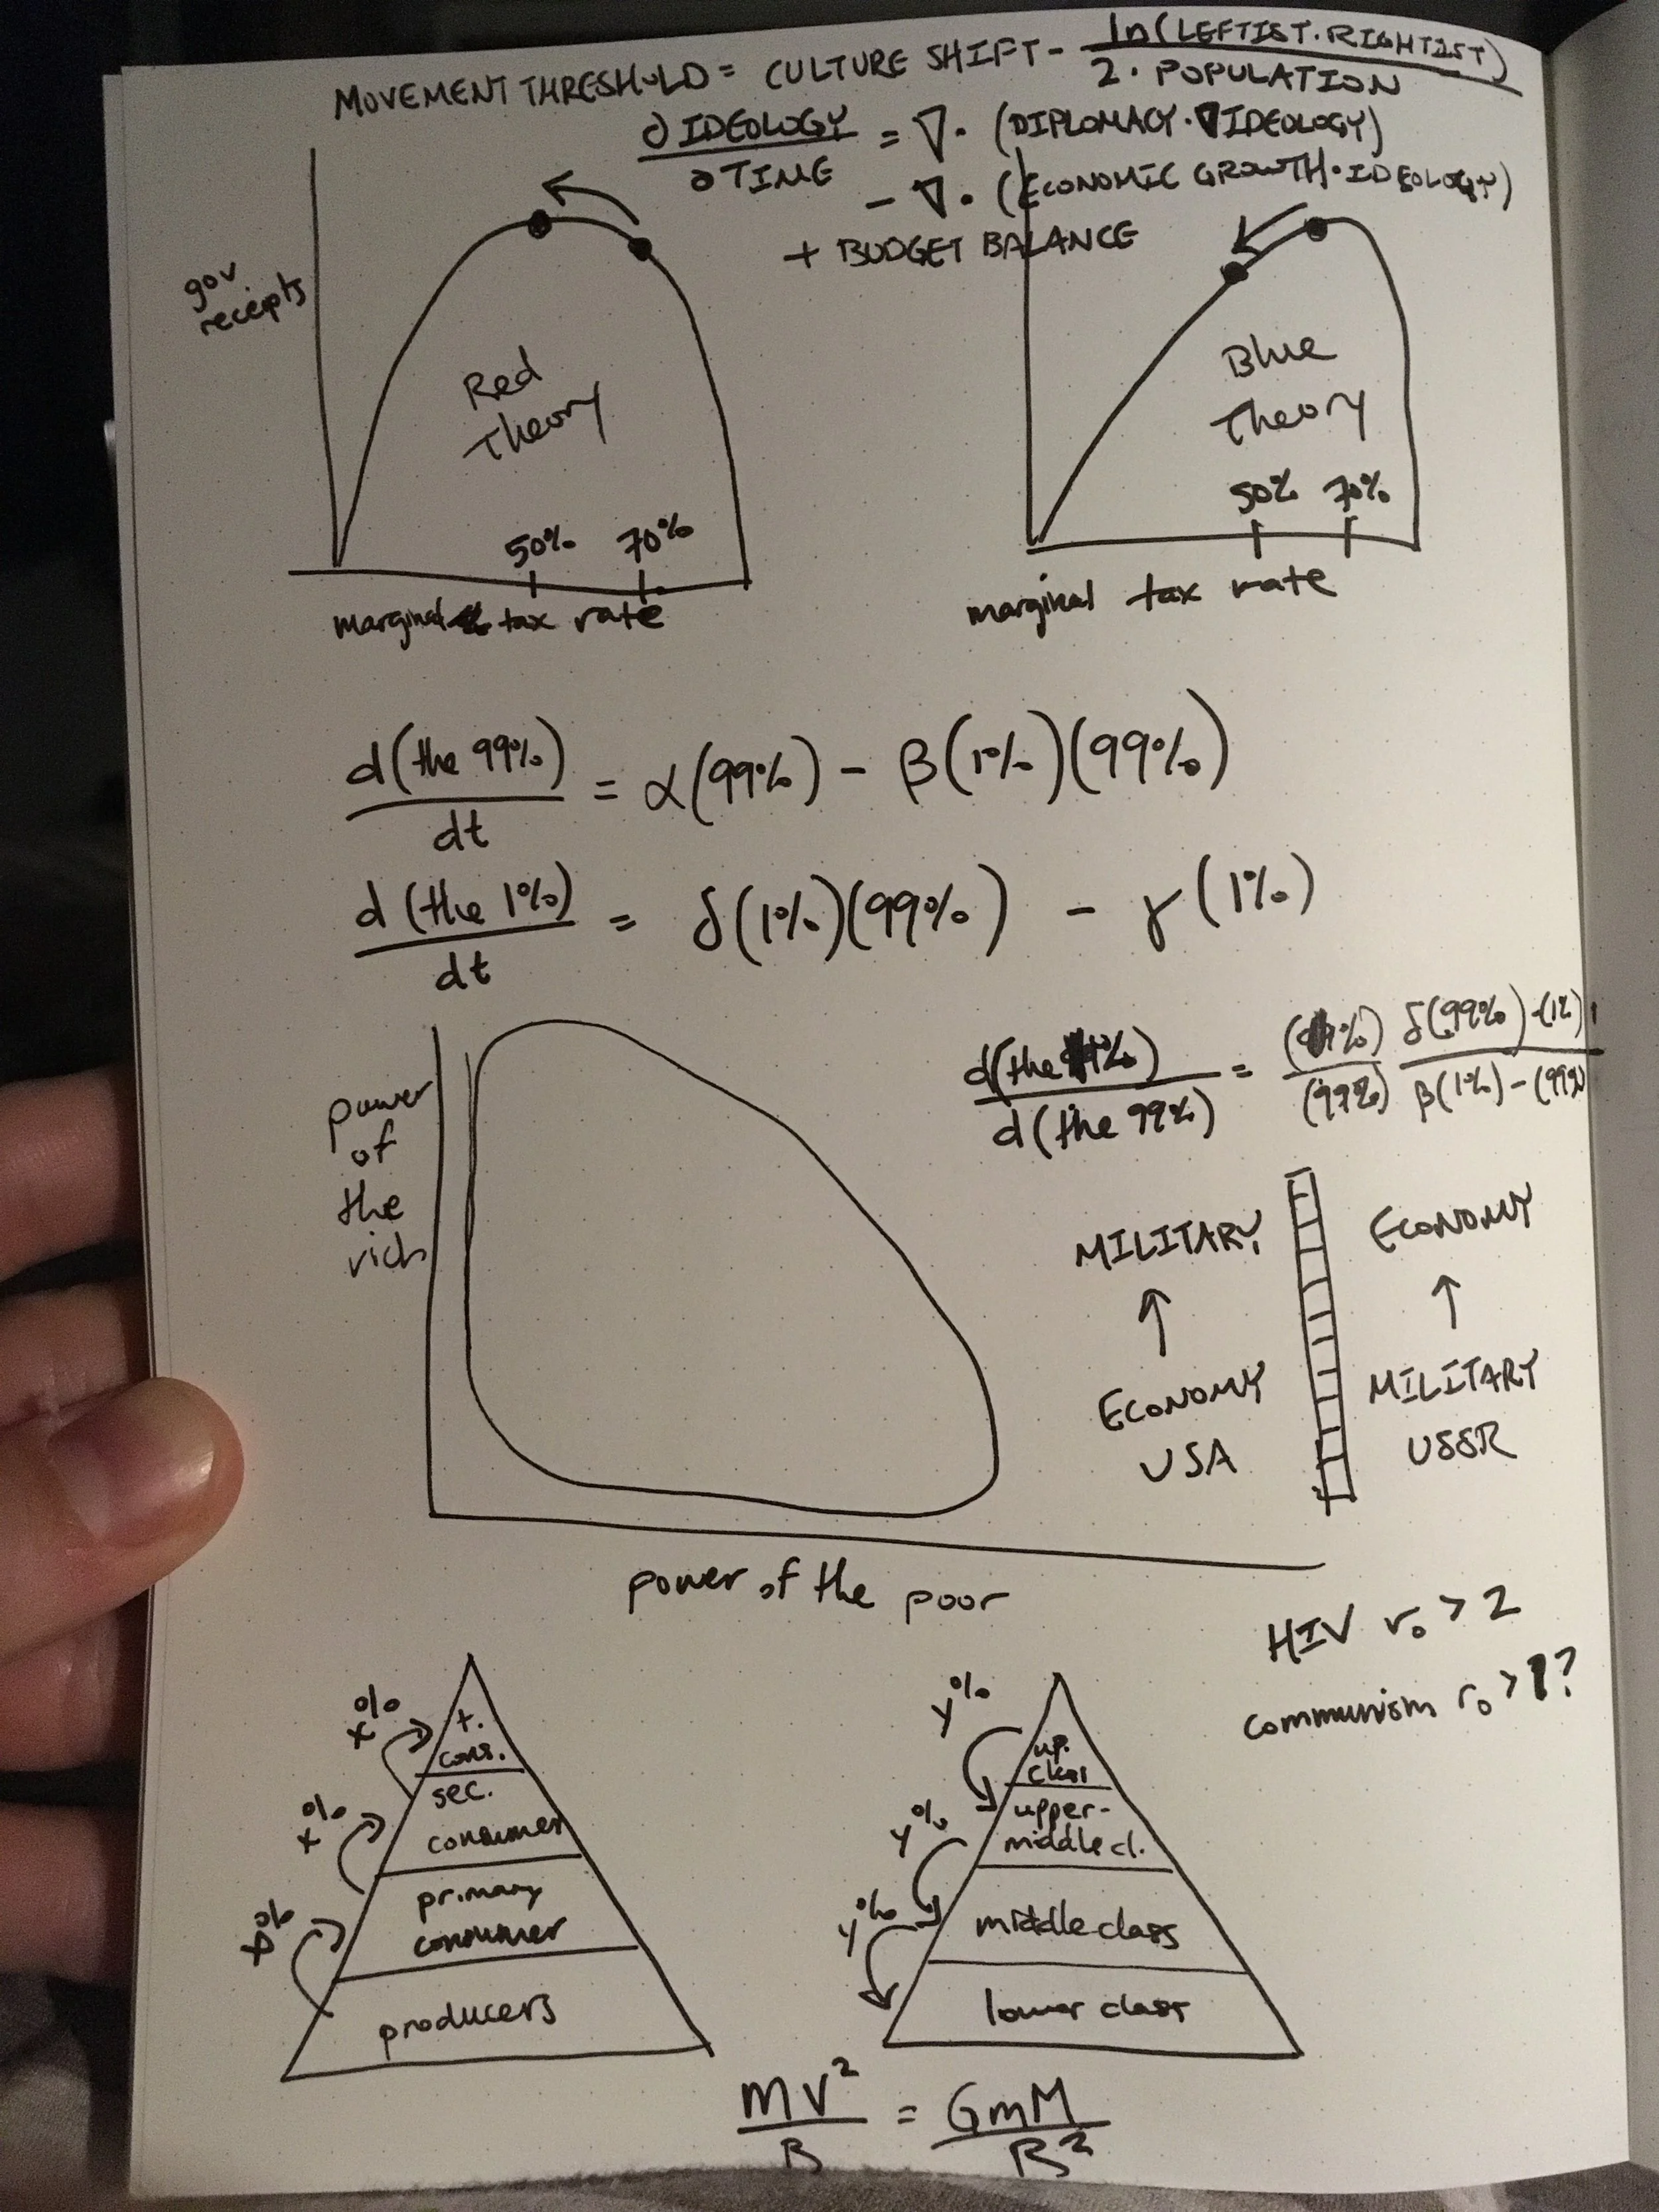 MOVEMENT THRESHOLD = CULTURE SHIFT - ln(LEFTIST·RIGHTIST) / 2·POPULATION
∂ IDEOLOGY / ∂ TIME = ∇· (DIPLOMACY·∇IDEOLOGY)
- ∇· (ECONOMIC GROWTH·IDEOLOGY)
+ BUDGET BALANCE
gov
receipts
Red
Theory
50% 70%
marginal tax rate
Blue
Theory
50% 70%
marginal tax rate
d(the 99%) / dt = α(99%) - β(1%)(99%)
d(the 1%) / dt = δ(1%)(99%) - γ(1%)
d(the 1%) / d(the 99%) = (1%) / (99%) δ(99%)-(1%) / β(1%)-(99%)
power
of
the
rich
power of the poor
MILITARY
↑
ECONOMY
USA
ECONOMY
↑
MILITARY
USSR
HIV r₀ > 2
communism r₀ > 1?
x%
x%
x%
t.
cons.
sec.
consumer
primary
consumer
producers
y%
y%
y%
up.
class
upper-
middle cl.
middle class
lower class
mv² / R = GmM / R²